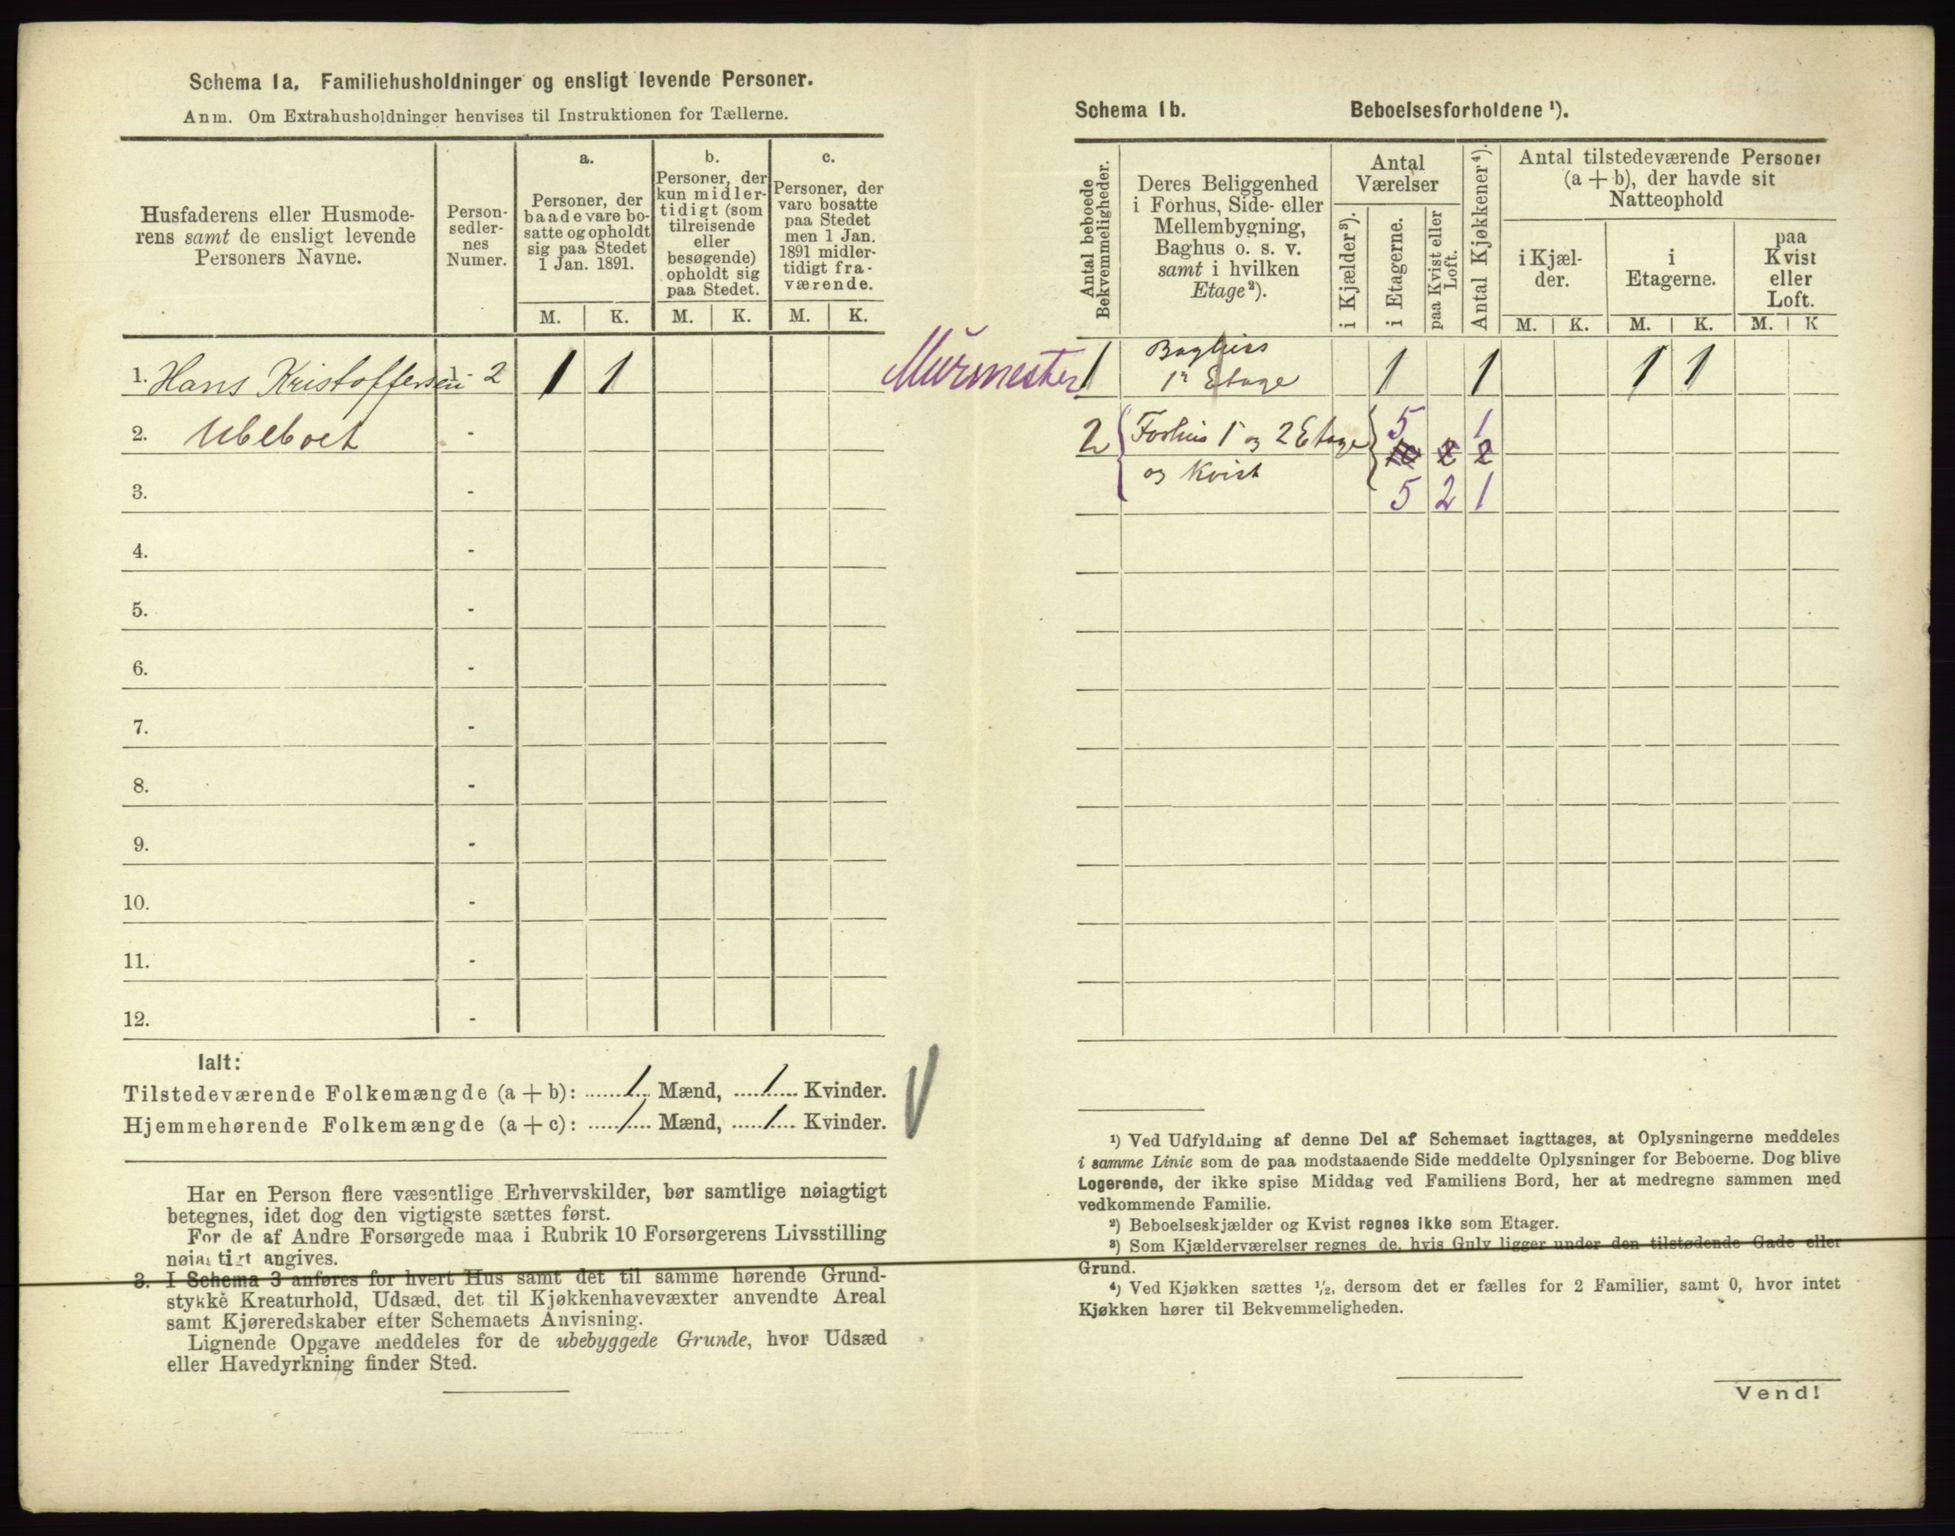 Schema 1a, Familiehusholdninger og ensligt levende Personer.
Anm. Om Extrahusholdninger henvises til Instruktionen for Tællerne.
Husfaderens eller Husmode-
rens samt de ensligt levende
Personers Navne.
Person-
sedler-
nes
Numer.
a.
Personer, der
baade vare bo-
satte og opholdt
sig paa Stedet
1 Jan. 1891.
b.
Personer, der
kun midler-
tidigt (som
tilreisende
eller
besøgende)
opholdt sig
paa Stedet.
c.
Personer, der
vare bosatte
paa Stedet
men 1 Jan.
1891 midler-
tidigt fra-
værende.
M. K. M. K. M. K.
1. Hans Kristoffersen 1 - 2 1 1 Murmester
2. Ubeboet -
3. -
4. -
5. -
6. -
7. -
8. -
9. -
10. -
11. -
12. -
Ialt:
Tilstedeværende Folkemængde (a + b): 1 Mænd, 1 Kvinder.
Hjemmehørende Folkemængde (a + c): 1 Mænd, 1 Kvinder.
Har en Person flere væsentlige Erhvervskilder, bør samtlige nøiagtigt
betegnes, idet dog den vigtigste sættes først.
For de af Andre Forsørgede maa i Rubrik 10 Forsørgerens Livsstilling
nøiagtigt angives.
3. I Schema 3 anføres for hvert Hus samt det til samme hørende Grund-
stykke Kreaturhold, Udsæd, det til Kjøkkenhavevæxter anvendte Areal
samt Kjøreredskaber efter Schemaets Anvisning.
Lignende Opgave meddeles for de ubebyggede Grunde, hvor Udsæd
eller Havedyrkning finder Sted.
Schema 1b. Beboelsesforholdene ¹).
Antal beboede
Bekvemmeligheder.
Deres Beliggenhed
i Forhus, Side- eller
Mellembygning,
Baghus o. s. v.
samt i hvilken
Etage²).
Antal
Værelser
i Kjælder³).
i Etagerne.
paa Kvist eller
Loft.
Antal Kjøkkener⁴).
Antal tilstedeværende Personer
(a + b), der havde sit
Natteophold
i Kjæl-
der.
i
Etagerne.
paa
Kvist
eller
Loft.
M. K. M. K. M. K
1 Baghus
1ᵗ Etage 1 1 1 1
5 1
2 Forhus 1 og 2 Etage 10 2 2
og Kvist
5 2 1
¹) Ved Udfyldning af denne Del af Schemaet iagttages, at Oplysningerne meddeles
i samme Linie som de paa modstaaende Side meddelte Oplysninger for Beboerne. Dog blive
Logerende, der ikke spise Middag ved Familiens Bord, her at medregne sammen med
vedkommende Familie.
²) Beboelseskjælder og Kvist regnes ikke som Etager.
³) Som Kjælderværelser regnes de, hvis Gulv ligger under den tilstødende Gade eller
Grund.
⁴) Ved Kjøkken sættes ½, dersom det er fælles for 2 Familier, samt 0, hvor intet
Kjøkken hører til Bekvemmeligheden.
Vend!